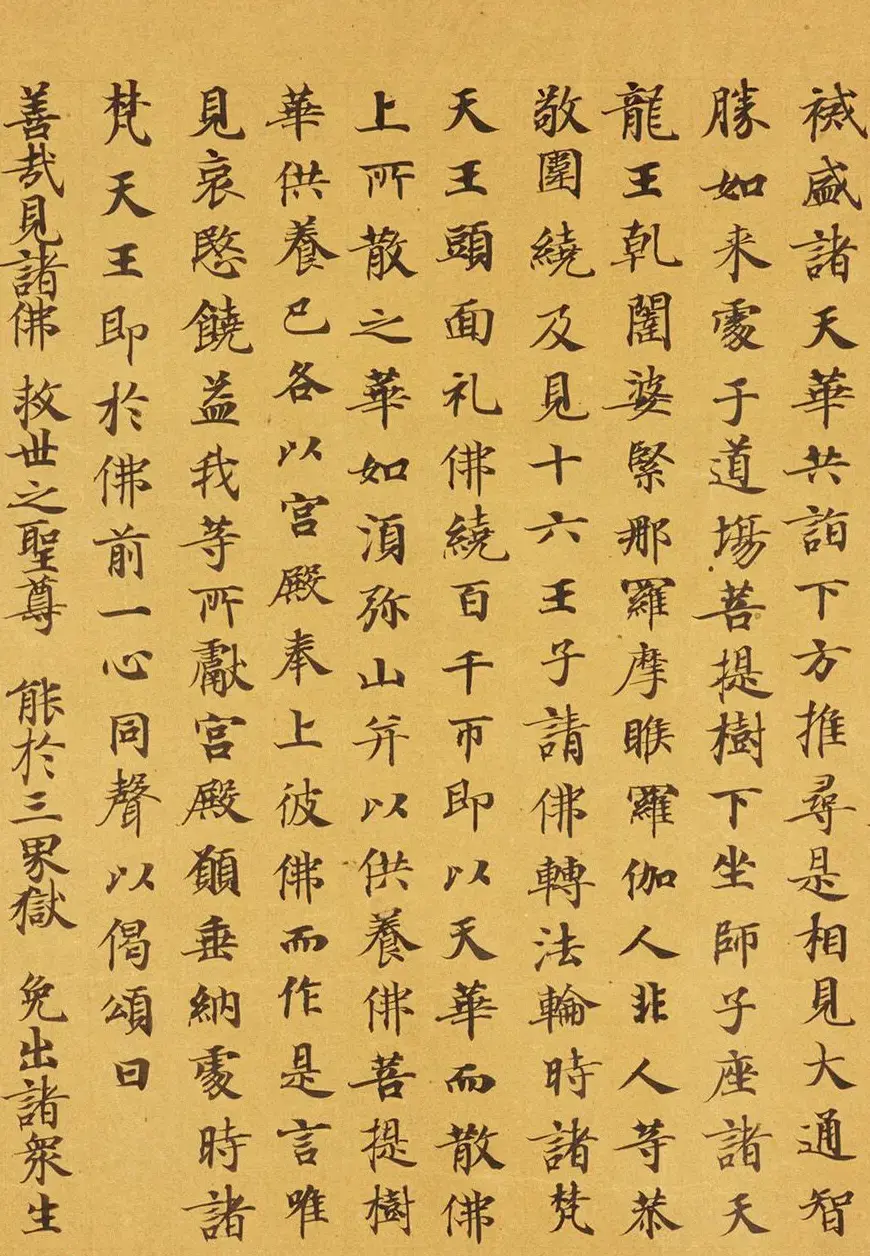 裓盛諸天華共詣下方推尋是相見大通智
勝如来處于道塲菩提樹下坐師子座諸天
龍王乹闥婆緊那羅摩睺羅伽人非人等恭
敬圍繞及見十六王子請佛轉法輪時諸梵
天王頭面礼佛繞百千帀即以天華而散佛
上所散之華如湏弥山并以供養佛菩提樹
華供養已各以宮殿奉上彼佛而作是言唯
見哀愍饒益我等所獻宮殿願垂納處時諸
梵天王即於佛前一心同聲以偈頌曰
善哉見諸佛 救世之聖尊 能於三界獄 免出諸衆生